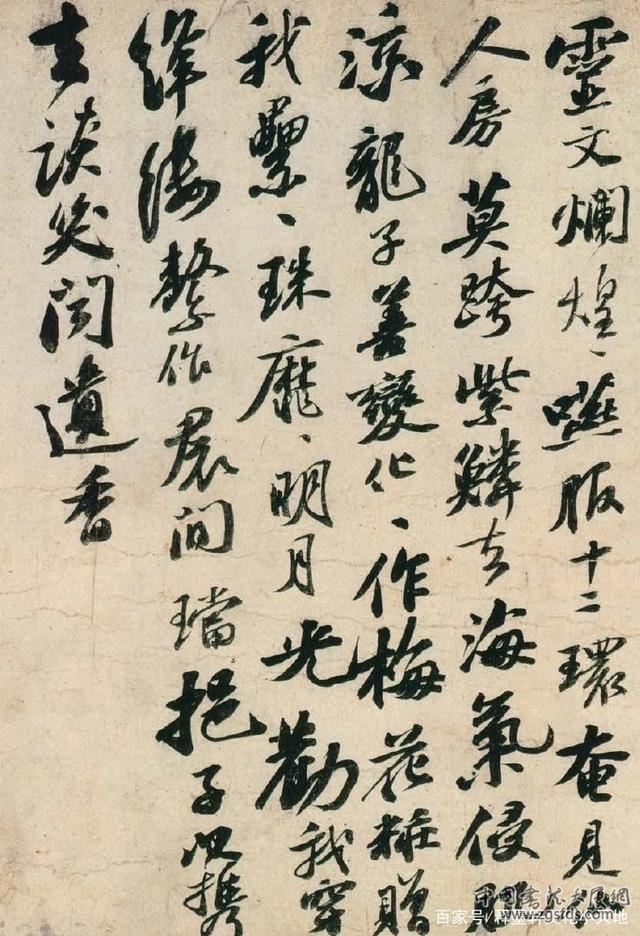 靈文爛煌、嚥服十二環奄見仙
人房莫跨紫鱗去海氣侵肌
涼龍子善變化、作梅花粧贈
我纍、珠靡、明月光勸我穿
絳縷繫作裙間璫挹子以攜
去談笑聞遺香
www.zgsfds.com
百家号/